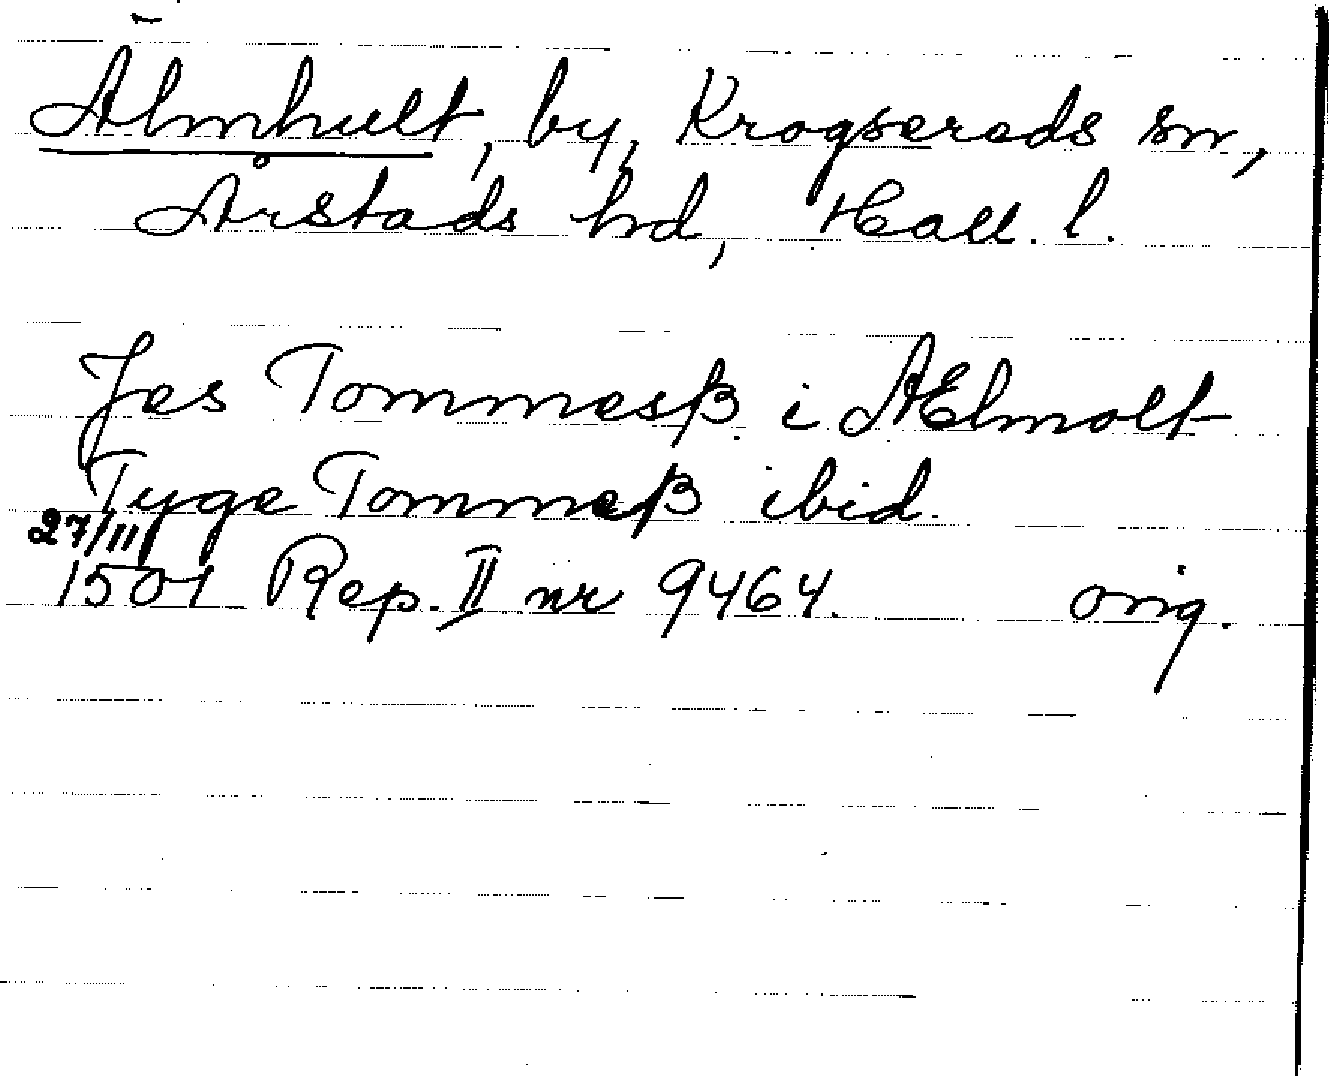 Älmhult, by, Krogsereds sn,
Årstads hd, Hall. l.
Jes Tommesß. i AElmolt
Tyge Tommeß ibid.
27/11
1501 Rep. II nr 9464. orig.